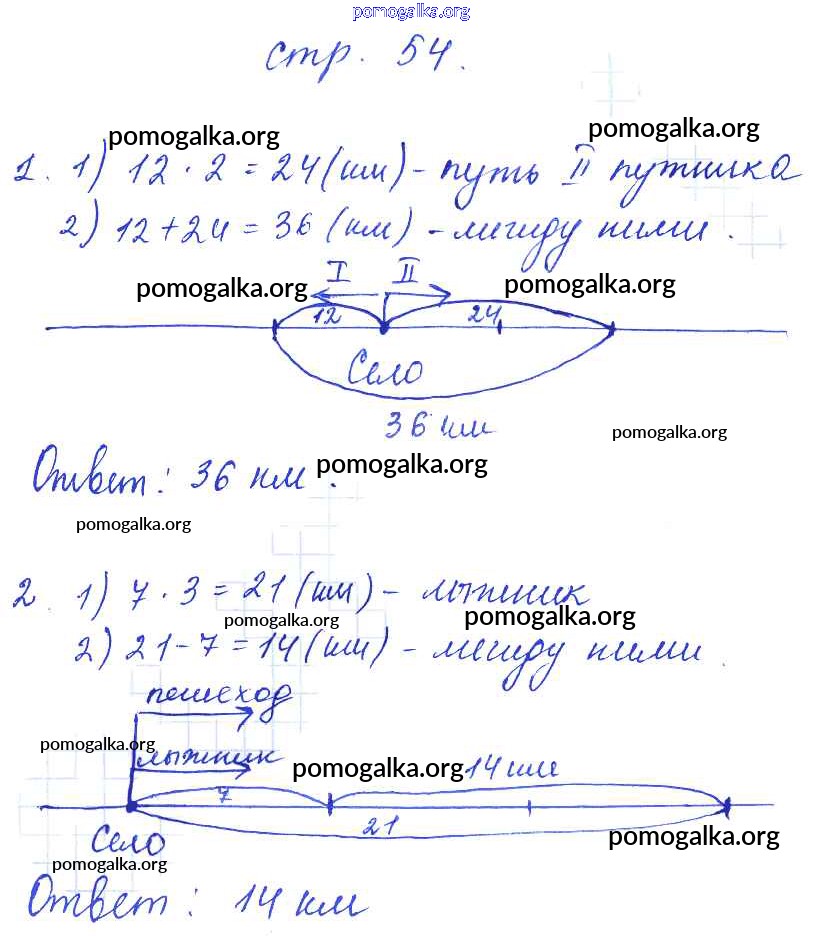 pomogalka.org
стр. 54.
pomogalka.org pomogalka.org
1. 1) 12 · 2 = 24 (км) - путь II путника
2) 12 + 24 = 36 (км) - между ними.
I II
pomogalka.org pomogalka.org
12 24
Село
36 км
pomogalka.org
Ответ: 36 км.
pomogalka.org
pomogalka.org
2. 1) 7 · 3 = 21 (км) - лыжник
pomogalka.org pomogalka.org
2) 21 - 7 = 14 (км) - между ними.
пешеход
pomogalka.org
лыжник
pomogalka.org 14 км
7
21
pomogalka.org
Село
pomogalka.org
Ответ: 14 км